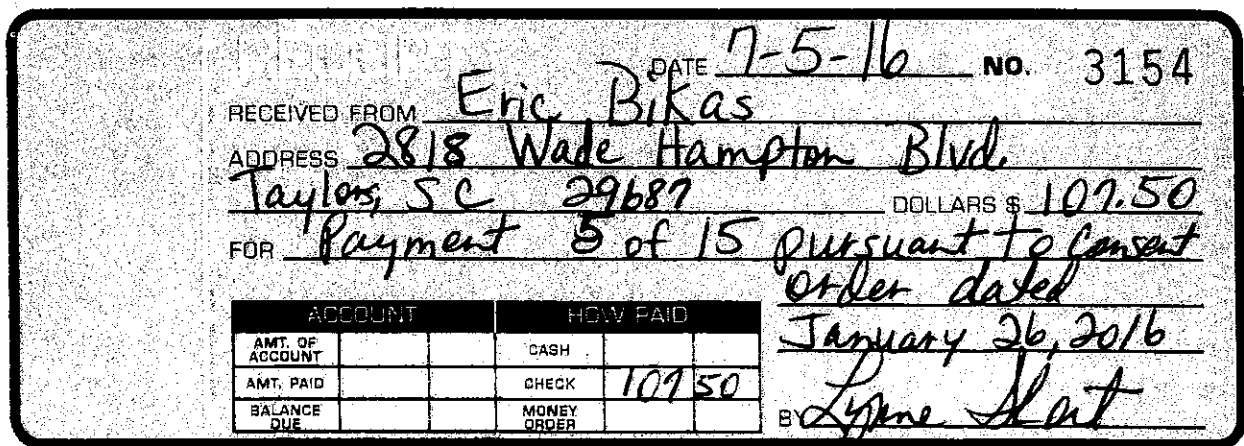 DATE 7-5-16 NO. 3154
RECEIVED FROM Eric Bikas
ADDRESS 2818 Wade Hampton Blvd.
Taylors, SC 29687 DOLLARS $ 107.50
FOR Payment 5 of 15 pursuant to Consent
order dated
January 26, 2016
ACCOUNT HOW PAID
AMT. OF ACCOUNT CASH
AMT. PAID CHECK 107 50
BALANCE DUE MONEY ORDER
BY Lynne Short